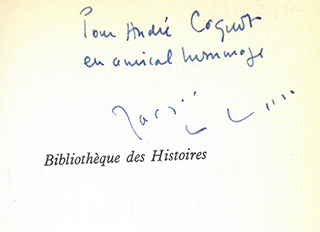 Pour André Caquot
en amical hommage
Bibliothèque des Histoires